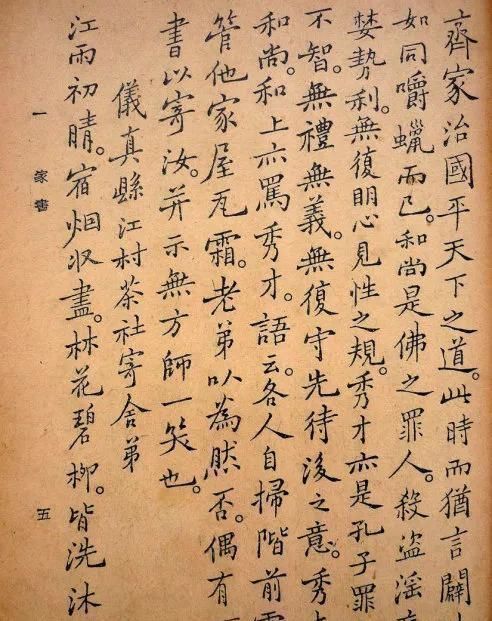 齊家治國平天下之道。此時而猶言闢
如同嚼蠟而已。和尚是佛之罪人。殺盜淫
婪勢利。無復明心見性之規。秀才亦是孔子罪
不智。無禮無義。無復守先待後之意。秀
和尚。和上亦罵秀才。語云。各人自掃階前
管他家屋瓦霜。老弟以為然否。偶有
書以寄汝。并示無方師一笑也。
儀真縣江村茶社寄舍弟
江雨初晴。宿烟収盡。林花碧柳。皆洗沐
一 家書 五